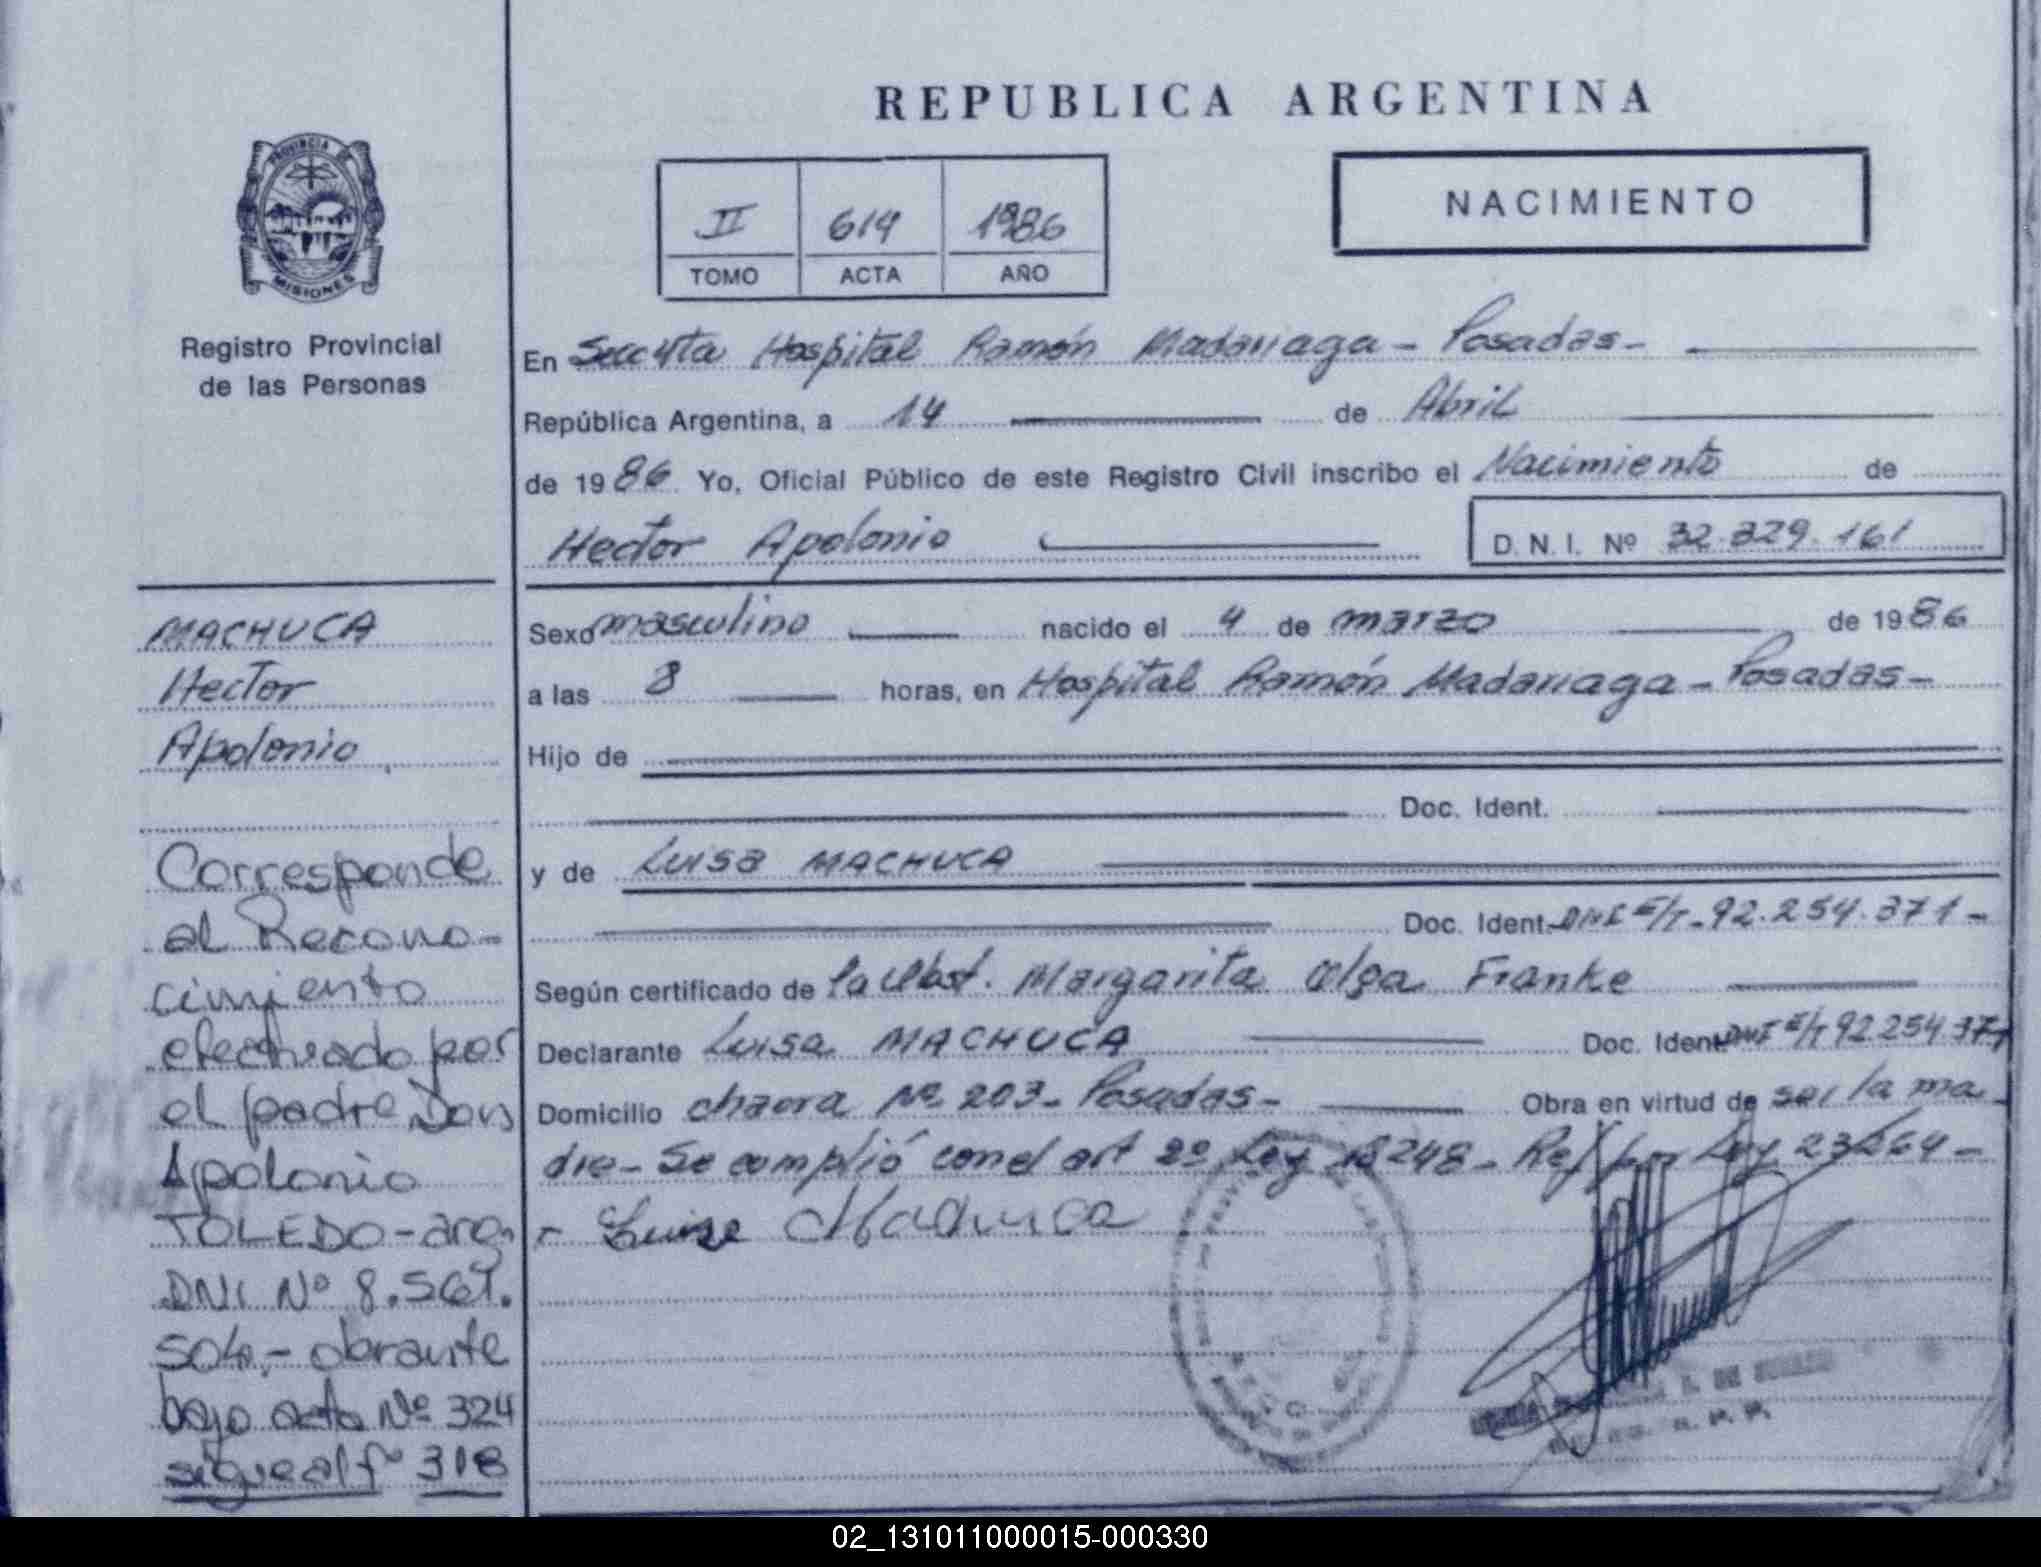 REPUBLICA ARGENTINA
PROVINCIA DE
MISIONES
Registro Provincial
de las Personas
II 614 1986
TOMO ACTA AÑO
NACIMIENTO
En Secc 4ta Hospital Ramón Madariaga - Posadas -
República Argentina, a 14 de Abril
de 1986 Yo, Oficial Público de este Registro Civil inscribo el Nacimiento de
Hector Apolonio D. N. I. Nº 32.329.161
Sexo masculino nacido el 4 de marzo de 1986
a las 8 horas, en Hospital Ramón Madariaga - Posadas -
Hijo de
Doc. Ident.
y de Luisa MACHUCA
Doc. Ident. DNI E/T - 92.254.371 -
Según certificado de la Obst. Margarita Olga Franke
Declarante Luisa MACHUCA Doc. Ident. DNI E/T 92.254.371
Domicilio chacra Nº 203 - Posadas - Obra en virtud de ser la ma
dre - Se complió con el art 2º Ley 18248 - Ref por Ley 23264 -
- Luisa Machuca
MACHUCA
Hector
Apolonio
Corresponde
al Recono-
cimiento
efectuado por
el padre Don
Apolonio
TOLEDO - arg.
DNI Nº 8.561.
504, - obrante
bajo acta Nº 324
sigue al fº 318
02_131011000015-000330